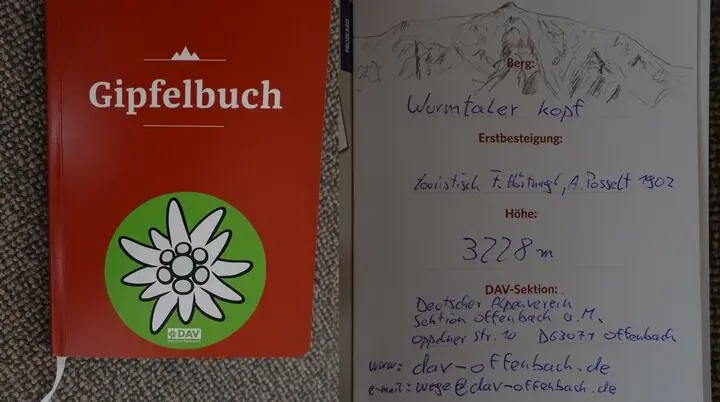 Gipfelbuch
DAV
PROSKARD
Berg:
Wurmtaler Kopf
Erstbesteigung:
touristisch F. Hörtnagl, A. Posselt 1902
Höhe:
3228 m
DAV-Sektion:
Deutscher Alpenverein
Sektion Offenbach a.M.
str. 10 D63071 Offenbach
www: dav-offenbach.de
e-mail: wege@dav-offenbach.de